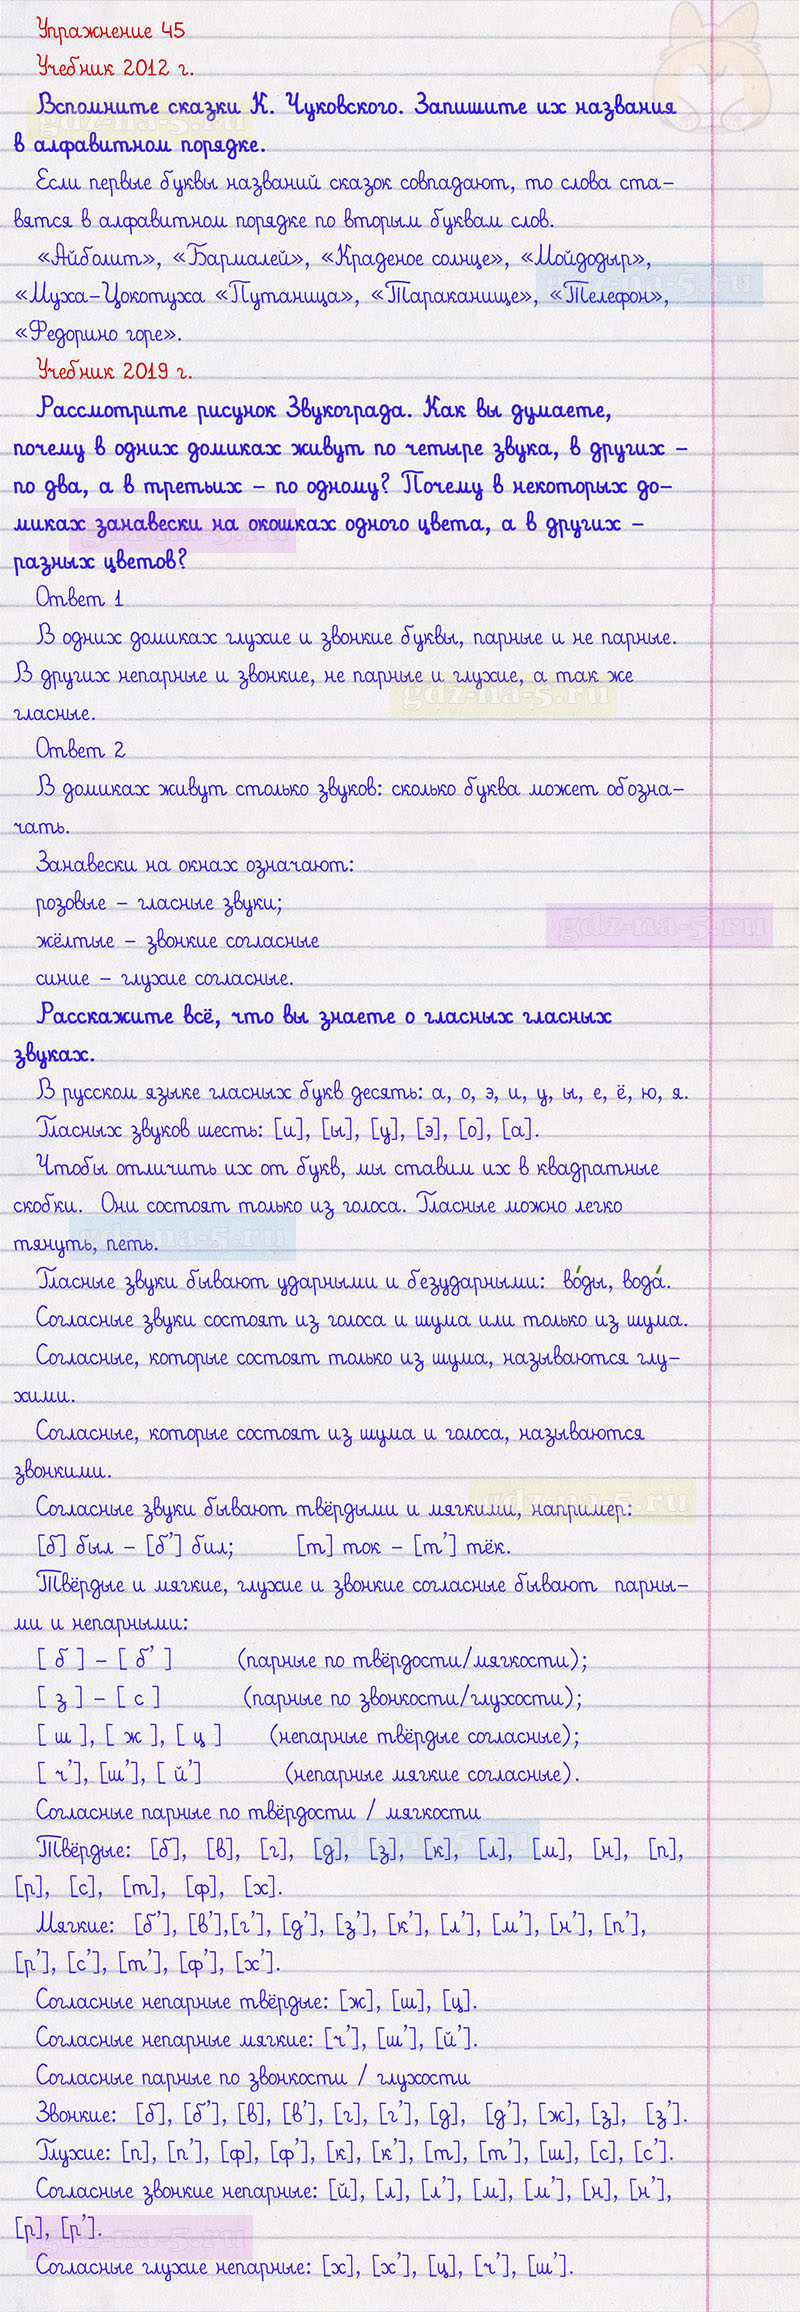 Упражнение 45
Учебник 2012 г.
Вспомните сказки К. Чуковского. Запишите их названия
в алфавитном порядке.
Если первые буквы названий сказок совпадают, то слова ста-
вятся в алфавитном порядке по вторым буквам слов.
«Айболит», «Бармалей», «Краденое солнце», «Мойдодыр»,
«Муха-Цокотуха «Путаница», «Тараканище», «Телефон»,
«Федорино горе».
Учебник 2019 г.
Рассмотрите рисунок Звукограда. Как вы думаете,
почему в одних домиках живут по четыре звука, в других –
по два, а в третьих – по одному? Почему в некоторых до-
миках занавески на окошках одного цвета, а в других –
разных цветов?
Ответ 1
В одних домиках глухие и звонкие буквы, парные и не парные.
В других непарные и звонкие, не парные и глухие, а так же
гласные.
Ответ 2
В домиках живут столько звуков: сколько буква может обозна-
чать.
Занавески на окнах означают:
розовые – гласные звуки;
жёлтые – звонкие согласные
синие – глухие согласные.
Расскажите всё, что вы знаете о гласных гласных
звуках.
В русском языке гласных букв десять: а, о, э, и, у, ы, е, ё, ю, я.
Гласных звуков шесть: [и], [ы], [у], [э], [о], [а].
Чтобы отличить их от букв, мы ставим их в квадратные
скобки. Они состоят только из голоса. Гласные можно легко
тянуть, петь.
Гласные звуки бывают ударными и безударными: во́ды, вода́.
Согласные звуки состоят из голоса и шума или только из шума.
Согласные, которые состоят только из шума, называются глу-
хими.
Согласные, которые состоят из шума и голоса, называются
звонкими.
Согласные звуки бывают твёрдыми и мягкими, например:
[б] был – [б’] бил; [т] ток – [т’] тёк.
Твёрдые и мягкие, глухие и звонкие согласные бывают парны-
ми и непарными:
[ б ] – [ б’ ] (парные по твёрдости/мягкости);
[ з ] – [ с ] (парные по звонкости/глухости);
[ ш ], [ ж ], [ ц ] (непарные твёрдые согласные);
[ ч’], [ш’], [ й’] (непарные мягкие согласные).
Согласные парные по твёрдости / мягкости
Твёрдые: [б], [в], [г], [д], [з], [к], [л], [м], [н], [п],
[р], [с], [т], [ф], [х].
Мягкие: [б’], [в’],[г’], [д’], [з’], [к’], [л’], [м’], [н’], [п’],
[р’], [с’], [т’], [ф’], [х’].
Согласные непарные твёрдые: [ж], [ш], [ц].
Согласные непарные мягкие: [ч’], [ш’], [й’].
Согласные парные по звонкости / глухости
Звонкие: [б], [б’], [в], [в’], [г], [г’], [д], [д’], [ж], [з], [з’].
Глухие: [п], [п’], [ф], [ф’], [к], [к’], [т], [т’], [ш], [с], [с’].
Согласные звонкие непарные: [й], [л], [л’], [м], [м’], [н], [н’],
[р], [р’].
Согласные глухие непарные: [х], [х’], [ц], [ч’], [ш’].
gdz-na-5.ru
gdz-na-5.ru
gdz-na-5.ru
gdz-na-5.ru
gdz-na-5.ru
gdz-na-5.ru
gdz-na-5.ru
gdz-na-5.ru
gdz-na-5.ru